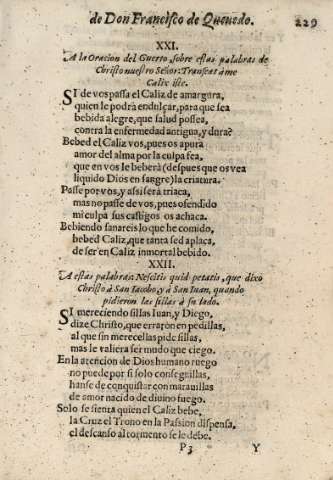 de Don Francisco de Queuedo. 229
XXI.
A la Oracion del Guerto, sobre estas palabras de
Christo nuestro Señor: Transeat à me
Calix iste.
SI de vos passa el Caliz de amargura,
quien le podrà endulçar, para que sea
bebida alegre, que salud possea,
contra la enfermedad antigua, y dura?
Bebed el Caliz vos, pues os apura
amor del alma por la culpa fea,
que en vos le beberà (despues que os vea
liquido Dios en sangre) la criatura.
Passe por vos, y assi serà triaca,
mas no passe de vos, pues ofendido
mi culpa sus castigos os achaca.
Bebiendo sanareis lo que he comido,
bebed Caliz, que tanta sed aplaca,
de ser en Caliz inmortal bebido.
XXII.
A estas palabras: Nescitis quid petatis, que dixo
Christo à San Iacobo, y à San Iuan, quando
pidieron las sillas à su lado.
SI mereciendo sillas Iuan, y Diego,
dize Christo, que erraron en pedillas,
al que sin merecellas pide sillas,
mas le valiera ser mudo que ciego.
En la atencion de Dios humano ruego
no puede por si solo conseguillas,
hanse de conquistar con marauillas
de amor nacido de diuino fuego.
Solo se sienta quien el Caliz bebe,
la Cruz el Trono en la Passion dispensa,
el descanso al tormento se le debe.
P 3 Y